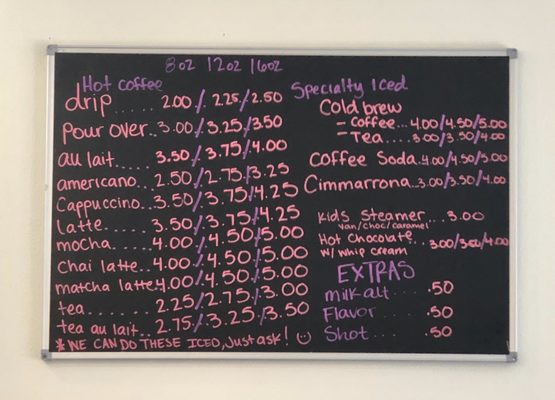 8oz 12oz 16oz
Hot coffee
drip...... 2.00/. 2.25/2.50
Pour over.. 3.00/3.25/3.50
au lait..... 3.50/3.75/4.00
americano... 2.50/2.75/3.25
Cappuccino.. 3.50/3.75/4.25
Latte...... 3.50/3.75/4.25
mocha..... 4.00/4.50/5.00
Chai latte.. 4.00/4.50/5.00
matcha latte.. 4.00/4.50/5.00
tea....... 2.25/2.75/3.00
tea au lait.. 2.75/3.25/3.50
*WE CAN DO THESE ICED, Just ask!
Specialty Iced
Cold brew
- Coffee... 4.00/4.50/5.00
- Tea.... 3.00/3.50/4.00
Coffee Soda.. 4.00/4.50/5.00
Cimmarrona.. 3.00/3.50/4.00
Kids Steamer... 3.00
van/choc/caramel
Hot Chocolate.. 3.00/3.50/4.00
w/ whip cream
EXTRAS
milk alt .... .50
Flavor .... .50
Shot .... .50